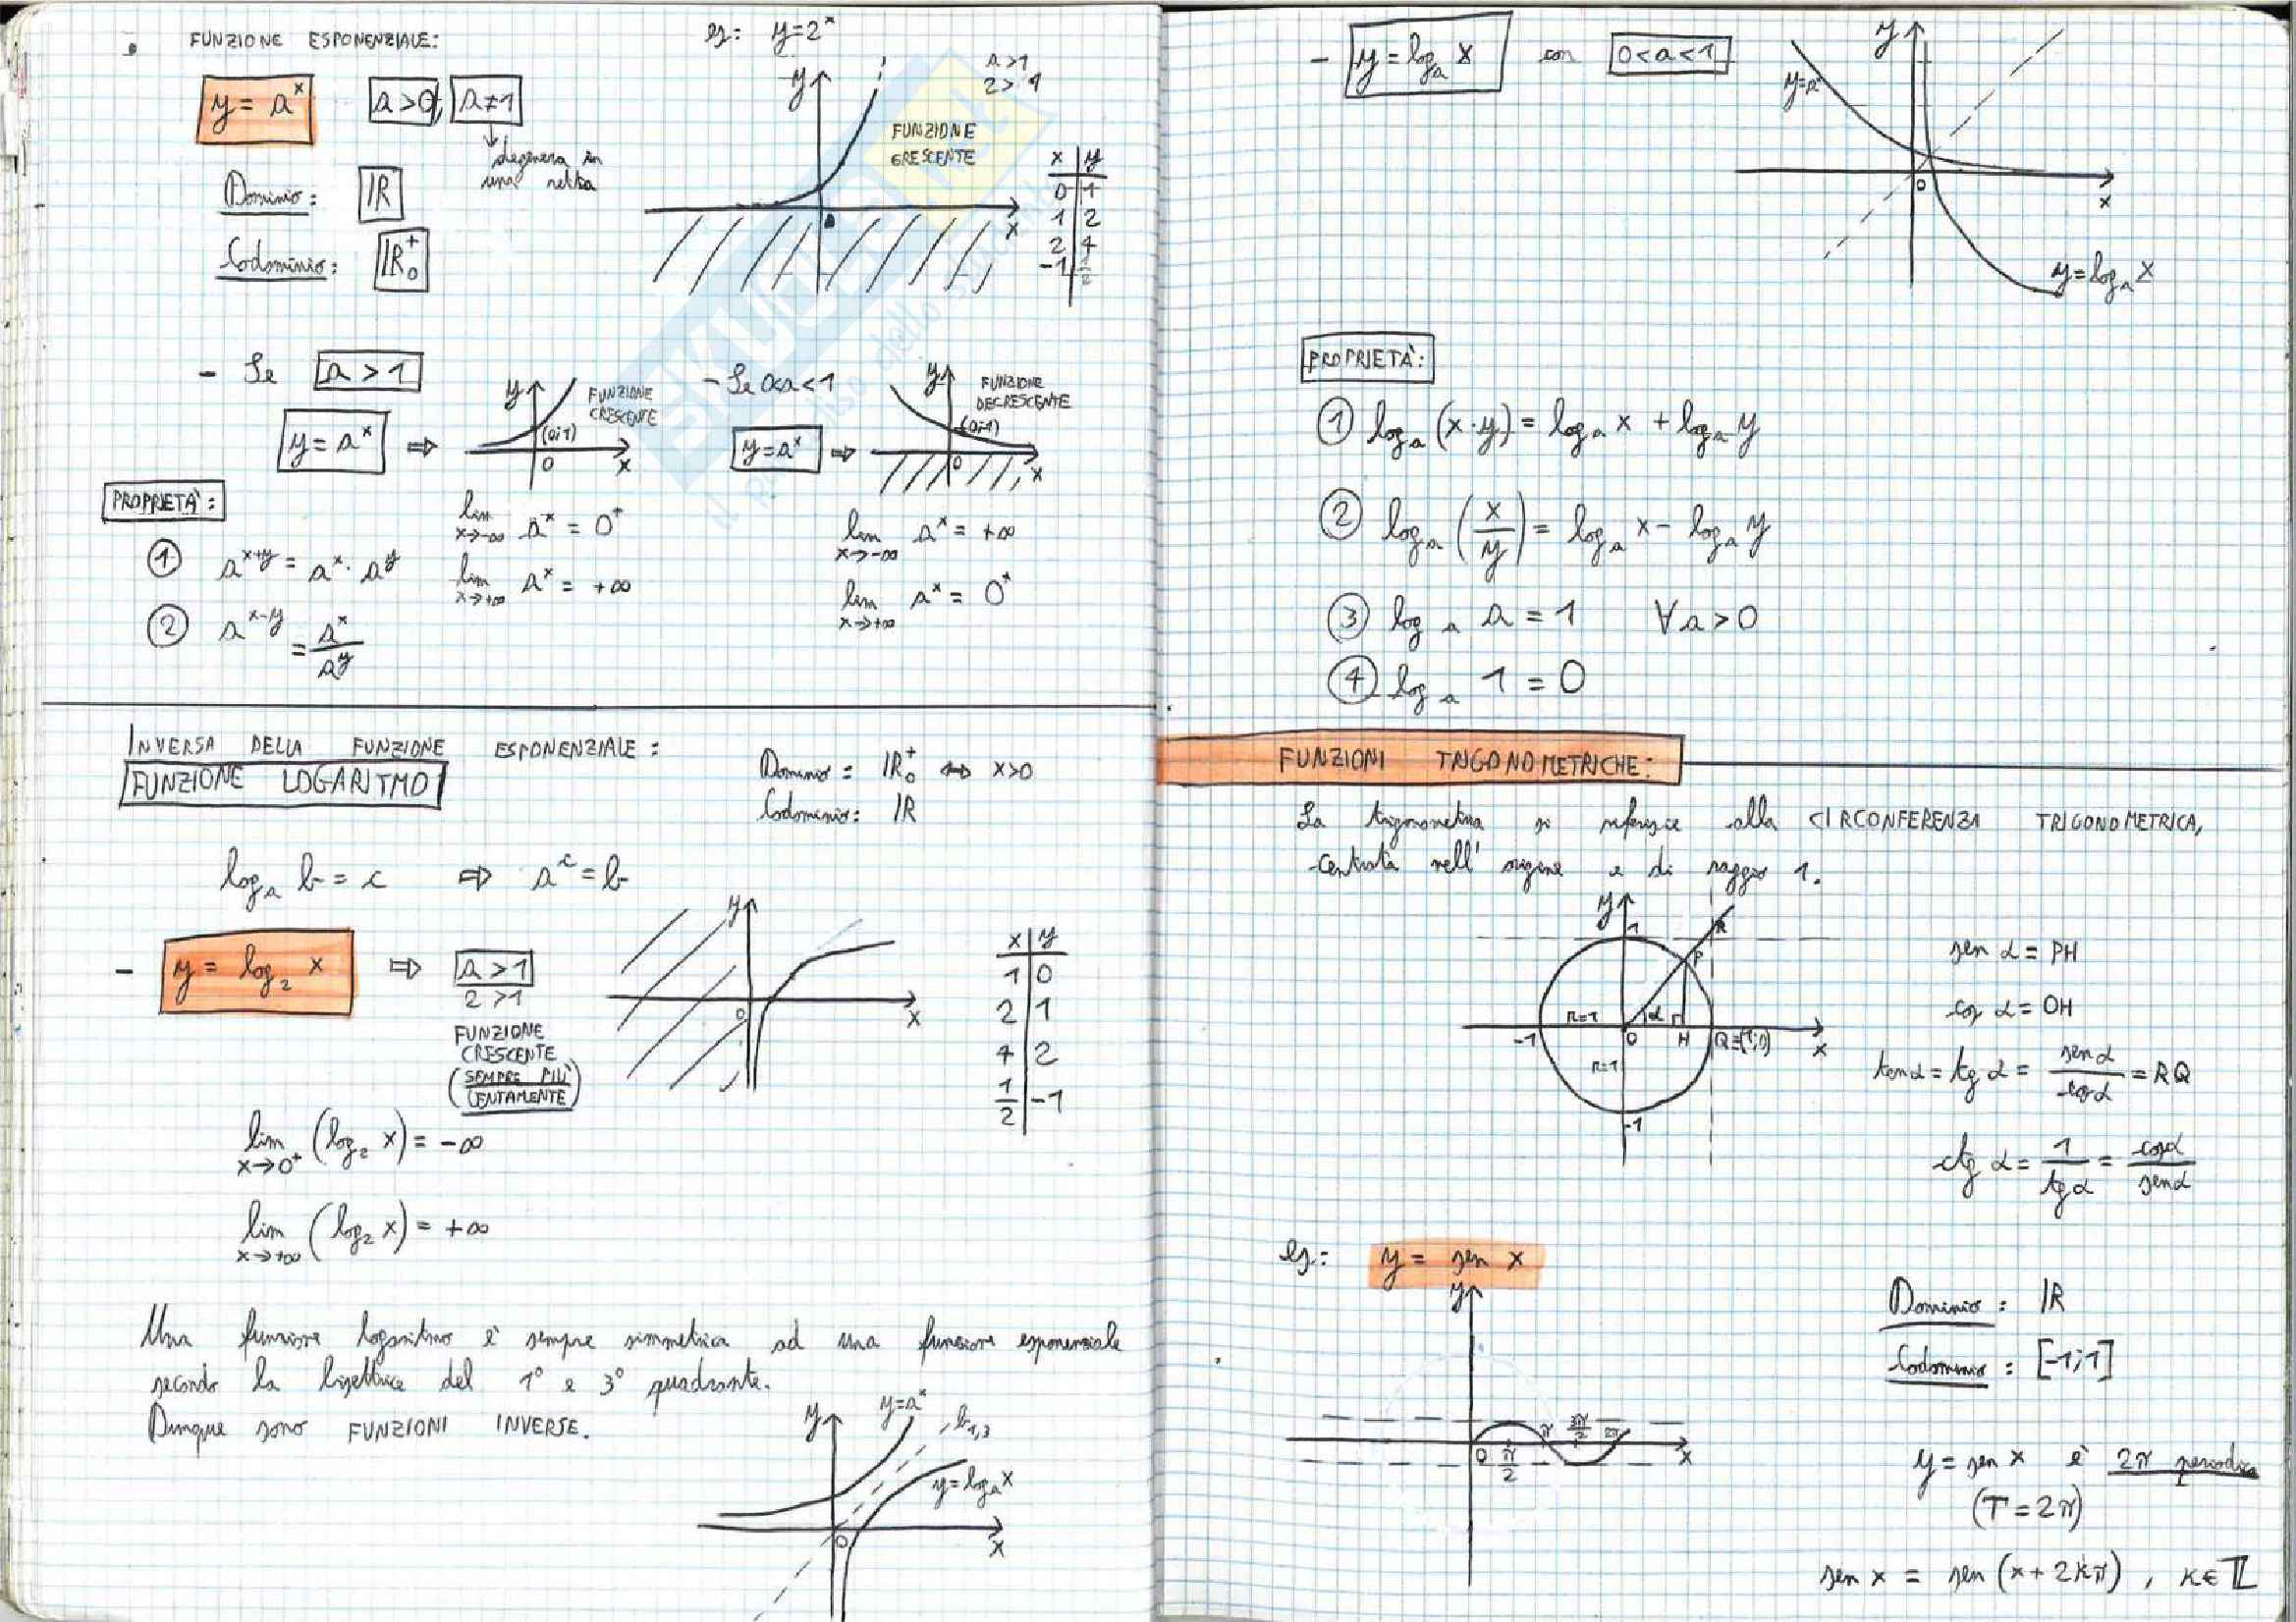 FUNZIONE ESPONENZIALE:
y = a^x a>0, a≠1
degenera in
una retta
Dominio: ℝ
Codominio: ℝ₀⁺
es: y=2^x
a>1
2>1
y
FUNZIONE
CRESCENTE
x
x | y
0 | 1
1 | 2
2 | 4
-1 | 1/2
- Se a>1
y = a^x ⇒
y
FUNZIONE
CRESCENTE
(0;1)
0 x
lim x→-∞ a^x = 0⁺
lim x→+∞ a^x = +∞
- Se 0<a<1
y=a^x ⇒
y
FUNZIONE
DECRESCENTE
(0;1)
0 x
lim x→-∞ a^x = +∞
lim x→+∞ a^x = 0⁺
PROPRIETÀ:
① a^(x+y) = a^x · a^y
② a^(x-y) = a^x/a^y
INVERSA DELLA FUNZIONE ESPONENZIALE:
FUNZIONE LOGARITMO
Dominio: ℝ₀⁺ ⇔ x>0
Codominio: ℝ
logₐ b = c ⇒ a^c = b
- y = log₂ x ⇒ a>1
2>1
FUNZIONE
CRESCENTE
(SEMPRE PIÙ
LENTAMENTE)
y
0 x
x | y
1 | 0
2 | 1
4 | 2
1/2 | -1
lim x→0⁺ (log₂ x) = -∞
lim x→+∞ (log₂ x) = +∞
Una funzione logaritmo è sempre simmetrica ad una funzione esponenziale
secondo la bisettrice del 1° e 3° quadrante.
Dunque sono FUNZIONI INVERSE.
y y=a^x b₁,₃
y=logₐx
0 x
- y = logₐ x con 0<a<1
y
y=a^x
0 x
y=logₐ x
PROPRIETÀ:
① logₐ (x·y) = logₐ x + logₐ y
② logₐ (x/y) = logₐ x - logₐ y
③ logₐ a = 1 ∀a>0
④ logₐ 1 = 0
FUNZIONI TRIGONOMETRICHE:
La trigonometria si riferisce alla CIRCONFERENZA TRIGONOMETRICA,
centrata nell'origine e di raggio 1.
y
1 R
P
R=1 α
-1 0 H Q≡(1;0) x
R=1
-1
sen α = PH
cos α = OH
tan α = tg α = sen α/cos α = RQ
ctg α = 1/tg α = cos α/sen α
es: y = sen x
y
0 π/2 π 3π/2 2π x
Dominio: ℝ
Codominio: [-1;1]
y = sen x è 2π periodica
(T=2π)
sen x = sen (x+2kπ), k∈ℤ